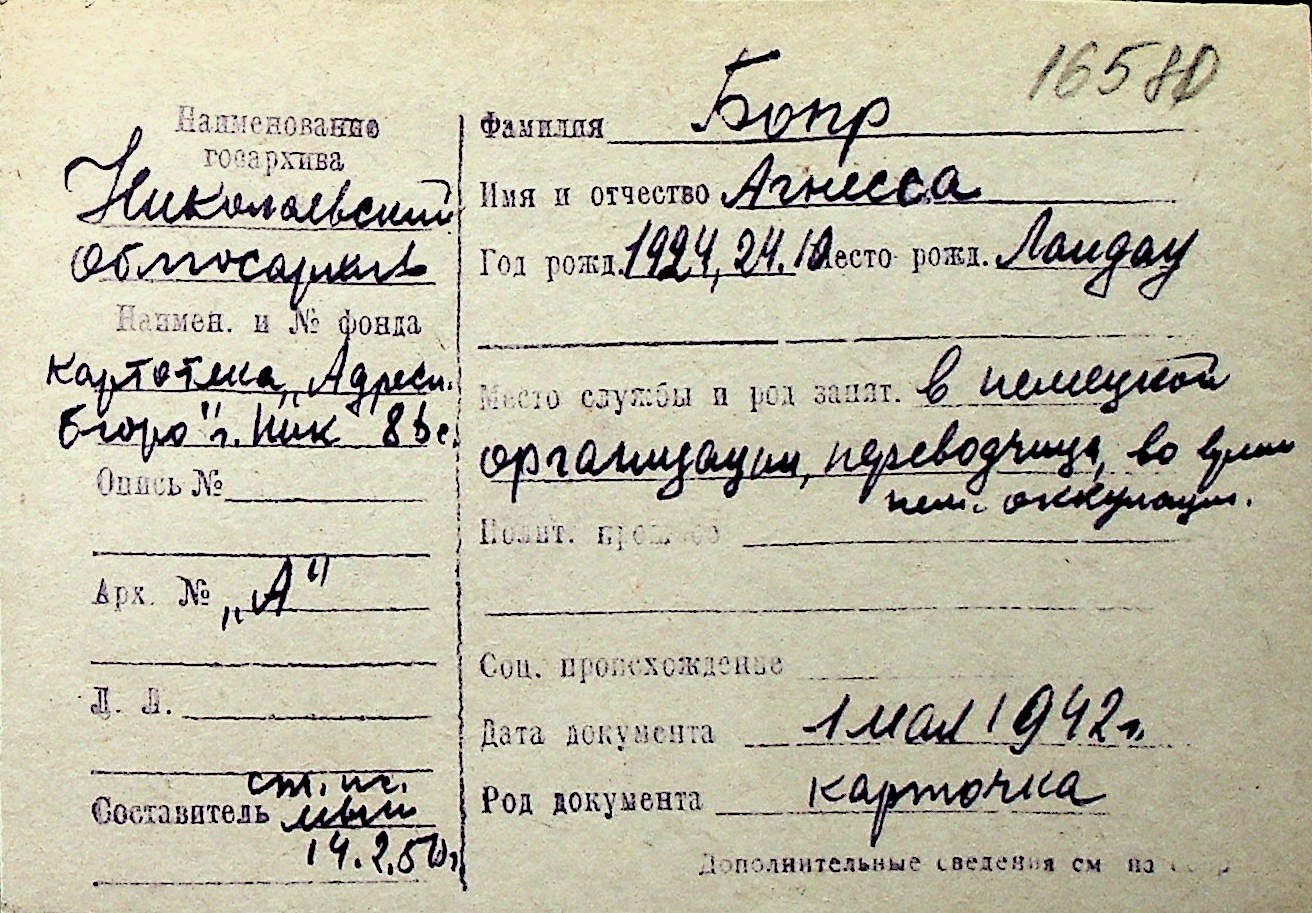 16580
Наименование
госархива
Николаевский
Облгосархив
Наимен. и № фонда
картотека „Адресн.
бюро" г. Ник
Опись №
Арх. № „А"
Л. Л.
Составитель ст. н.с.
14.2.50г.
Фамилия Бопр
Имя и отчество Агнесса
Год рожд. 1924, 24.10 Место рожд. Ландау
Место службы и род занят. в немецкой
организации, переводчица, во время
нем. оккупации.
Полит. прошлое
Соц. происхождение
Дата документа 1 мая 1942 г.
Род документа карточка
Дополнительные сведения см на обор